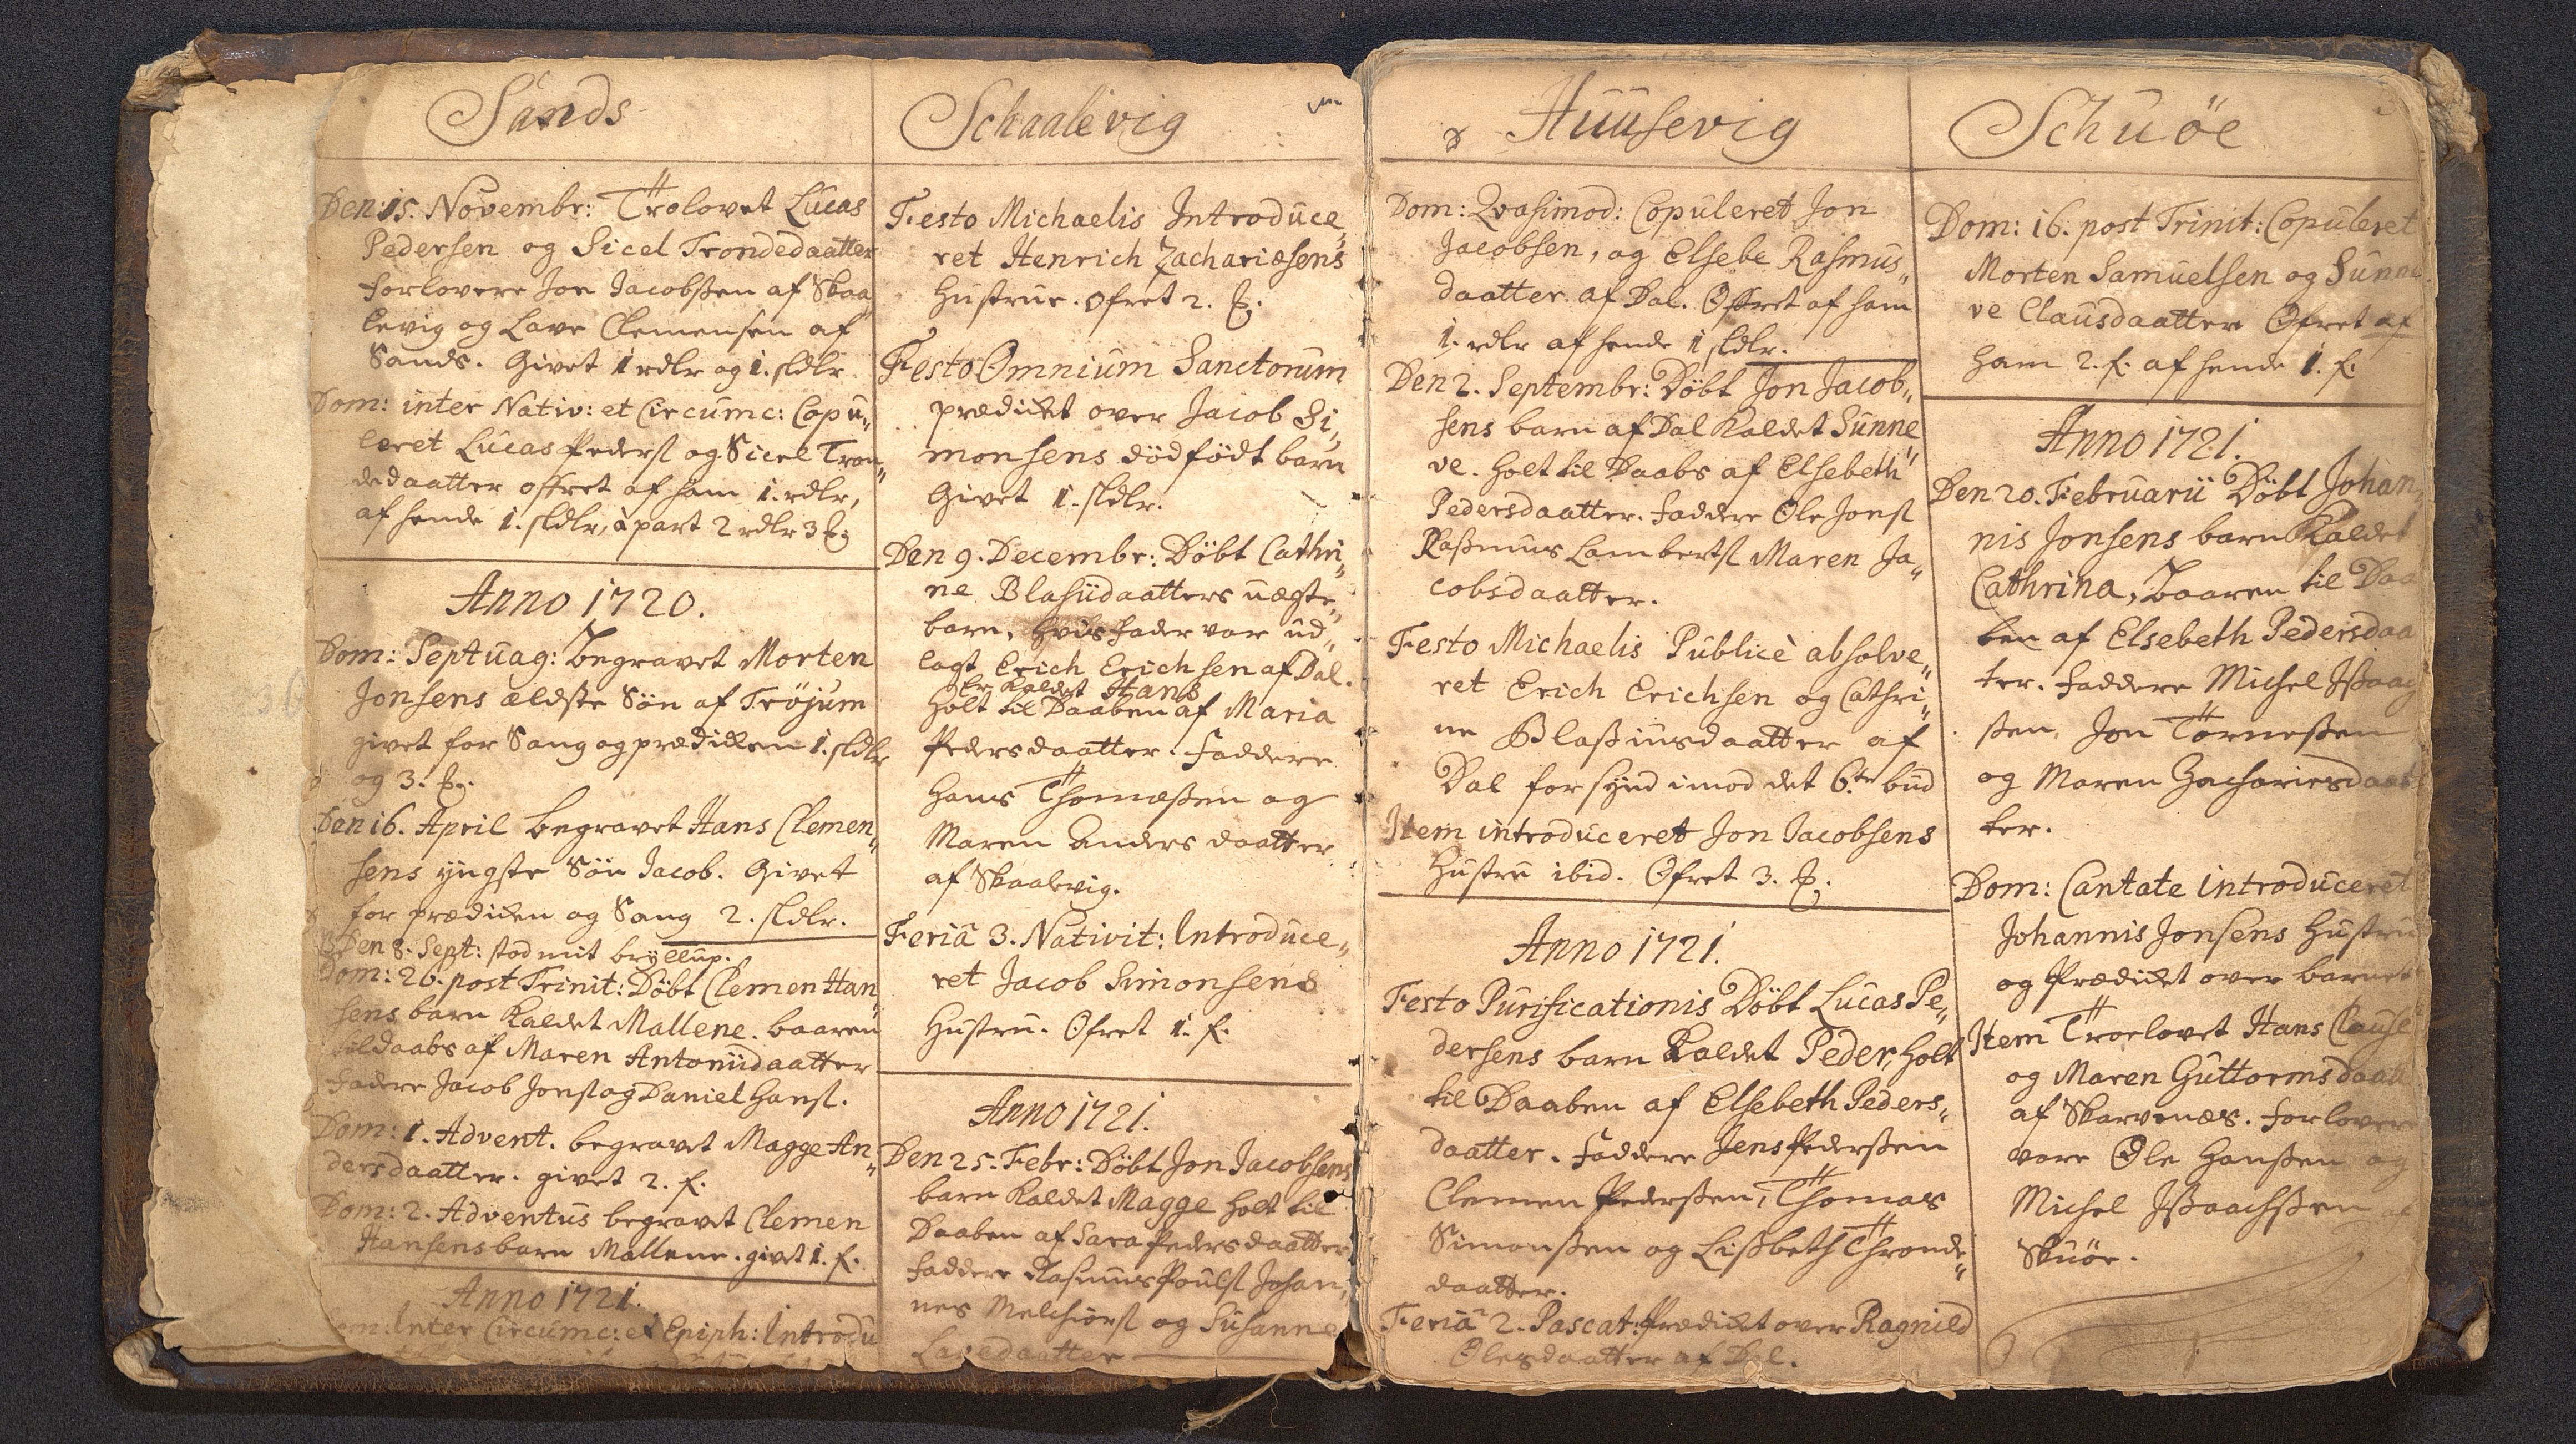 Sands
Den 15. Novembr: Trolovet Lucas
Pedersen og Sicel Trondedaatter
Forlovere Jon Jacobssen af Skaa„
levig og Lave Clemensen af
Sands. Givet 1 rdlr og 1. sldlr.
Dom: inter Nativ: et Circumc: Copu„
leret Lucas Peders og Sicel Tron„
dedaatter offret af ham 1. rdlr,
af hende 1. sldlr, à part 2 rdlr 3 ß
Anno 1720.
Dom: Septuag: Begravet Morten
Jonsens ældste Sön af Tröjum
givet for Sang og prædicken 1. sldlr
og 3. ß.
Den 16. April begravet Hans Clemen„
sens yngste Sön Jacob. Givet
for prædicken og Sang 2. sldlr.
Den 8. Sept: stod mit bryllup.
Dom: 26. post Trinit: Döbt Clemen Han„
sens barn kaldet Mallene. baaren
til daabs af Maren Antoniidaatter
Fadere Jacob Jons og Daniel Hans.
Dom: 1. Advent. begravet Magge An„
dersdaatter. givet 2. f.
Dom: 2. Adventus begravet Clemen
Hansens barn Mallene. givet 1. f.
Anno 1721.
Inter Circumc: et Epiph: Introdu
Schaalevig
Festo Michaelis Introduce„
ret Henrich Zachariæsens
Hustrue. Ofret 2. ß.
Festo Omnium Sanctorum
prædicket over Jacob Si„
monsens dödfödt barn
Givet 1. sldlr.
Den 9. Decembr: Döbt Cathri„
ne Blasiidaatters uægte„
barn, hvis Fader var ud„
lagt Erich Erichsen af Dal.
kaldet Hans
Holt til Daaben af Maria
Pedersdaatter. Faddere
Hans Thomæssen og
Maren Andersdaatter
af Skaalevig.
Feriâ 3. Nativit: Introduce„
ret Jacob Simonsens
Hustru. Ofret 1. f.
Anno 1721.
Den 25. Febr: Döbt Jon Jacobsens
barn kaldet Magge holt til
Daaben af Sara Pedersdaatter
Faddere Rasmus Pouls Johan„
nes Melchiors og Susanne
Lavedaatter
Huusevig
Dom: Qvasimod: Copuleret Jon
Jacobsen, og Elsebe Rasmus„
daatter af Dal. Offret af ham
1. rdlr af hende 1 sldlr.
Den 2. Septembr: Döbt Jon Jacob„
sens barn af Dal kaldet Sunne„
ve. Holt til Daabs af Elsebeth
Pedersdaatter. Faddere Ole Jons
Rassmus Lamberts Maren Ja„
cobsdaatter.
Festo Michaelis Publicè absolve„
ret Erich Erichsen og Cathri„
ne Blassiusdaatter af
Dal for synd imod det 6.te bud
Item introduceret Jon Jacobsens
Hustru ibid. Ofret 3. ß.
Anno 1721.
Festo Purificationis Döbt Lucas Pe„
dersens barn kaldet Peder, holt
til Daaben af Elsebeth Peders„
daatter. Faddere Jens Pederssen
Clemen Pederssen, Thomas
Simonssen og Lissbeth Thronde„
daatter.
Feriâ 2. Pascat: Prædicket over Ragnild
Olesdaatter af Dal.
Schuöe
Dom: 16. post Trinit: Copuleret
Morten Samuelsen og Sunne
ve Clausdaatter Ofret af
ham 2. f. af hende 1. f.
Anno 1721.
Den 20. Februarii Döbt Johan„
nis Jonsens barn kaldet
Cathrina, Baaren til Daa
ben af Elsebeth Pedersdaa
ter. Faddere Michel Issaag
ssen, Jon Tornessen
og Maren Zachariesdaat
ter.
Dom: Cantate introduceret
Johannis Jonsens Hustru
og Prædicket over barnet
Item Troelovet Hans Claus
og Maren Guttormsdaat
af Skarvenæs. Forlovere
vare Ole Hanssen og
Michel Issaachssen af
Skuöe.